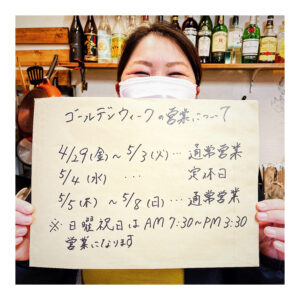 ゴールデンウィークの営業について
4/29(金)〜5/3(火)… 通常営業
5/4(水) … 定休日
5/5(木)〜5/8(日)… 通常営業
※日曜祝日はAM7:30〜PM3:30
営業になります